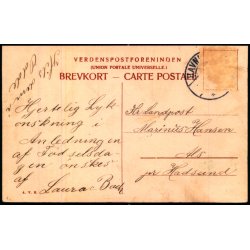 VERDENSPOSTFORENINGEN
(UNION POSTALE UNIVERSELLE.)
BREVKORT – CARTE POSTALE
Hils
Hertelig Lyk
ønskning i
Anledningen
af Fødselsda
gen ønskes
af
Laura Bach
Kr. landpost
Marinus Hansen
Als
pr Hadsund